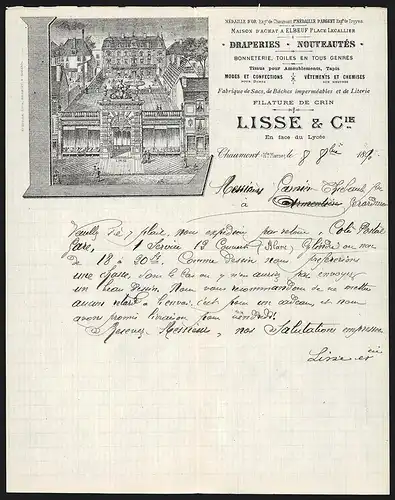 MEDAILLE D'OR, Expon de Chaumont MEDAILLE D'ARGENT Expon de Troyes
MAISON D'ACHAT A ELBEUF PLACE LECALLIER
DRAPERIES - NOUVEAUTÉS
BONNETERIE, TOILES EN TOUS GENRES
Tissus pour Ameublements, Tapis
MODES ET CONFECTIONS & VÊTEMENTS ET CHEMISES
POUR DAMES SUR MESURE
Fabrique de Sacs, de Bâches imperméables et de Literie
FILATURE DE CRIN
LISSE & CIE
En face du Lycée
Chaumont, (Hte Marne), le 8 8bre 189
Messieurs
à Gérardmer
Veuillez s'il plait, nous expédier par retour, Colis Postal
Gare, 1 Service 12 Couverts
de 18 à 20 f. Comme dessin nous préférerions
une chasse, dans le cas où y n'en aurait pas envoyez
un beau dessin. Nous vous recommandons de ne mettre
aucun à l'envoi, c'est pour un cadeau et nous
avons promis livraison pour vendredi.
Recevez Messieurs, nos Salutations empressées
Lisse et Cie